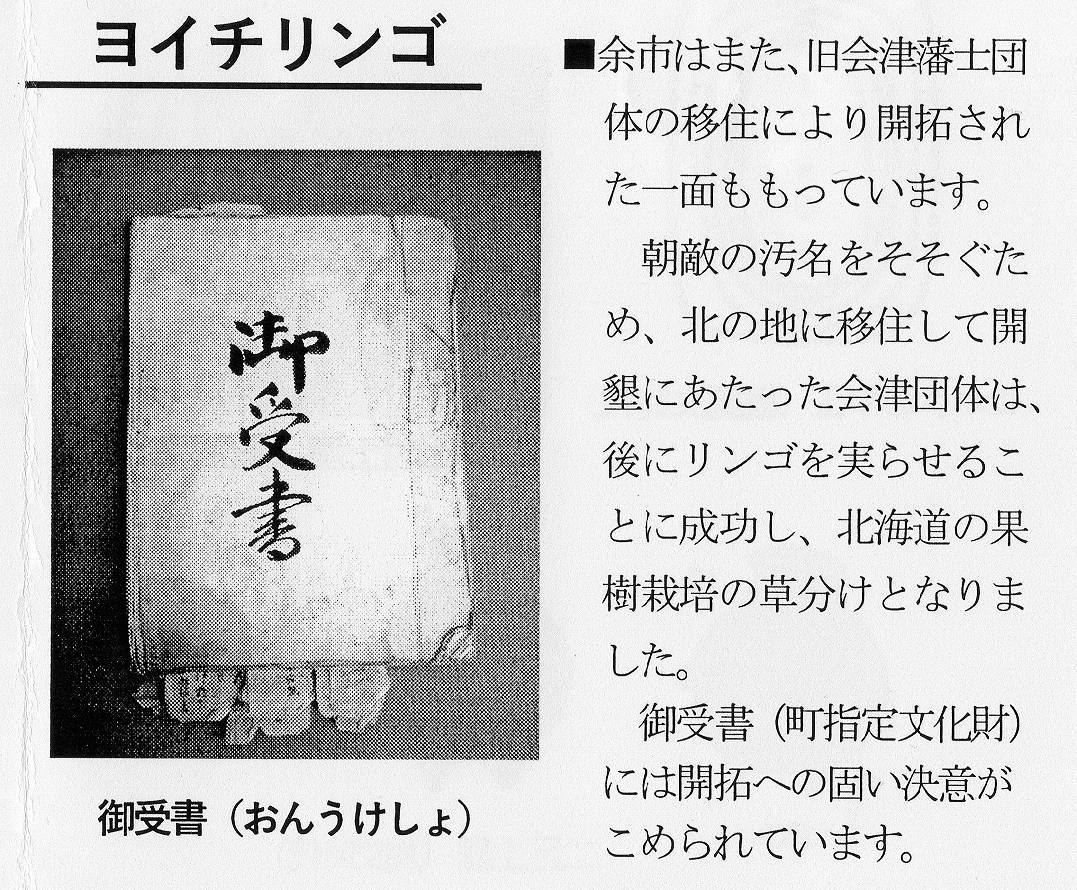 ヨイチリンゴ
御受書
御受書（おんうけしょ）
■余市はまた、旧会津藩士団
体の移住により開拓され
た一面ももっています。
　朝敵の汚名をそそぐた
め、北の地に移住して開
墾にあたった会津団体は、
後にリンゴを実らせるこ
とに成功し、北海道の果
樹栽培の草分けとなりま
した。
　御受書（町指定文化財）
には開拓への固い決意が
こめられています。